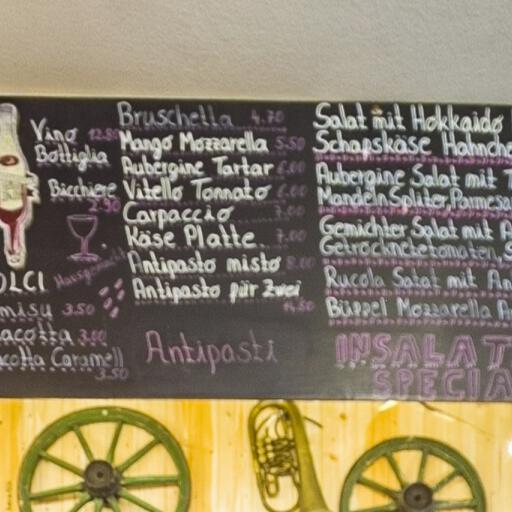 Vino 12.80
Bottiglia
Bicchiere
2.90
Hausgemacht
OLCI
misu 3.50
acotta 3.00
acotta Caramell
3.50
Bruschetta 4.70
Mango Mozzarella 5.50
Aubergine Tartar 6.00
Vitello Tonnato 6.00
Carpaccio 7.00
Käse Platte 7.00
Antipasto misto 8.00
Antipasto für Zwei
14.50
Antipasti
Salat mit Hokkaido
Schapskäse Hahnche
Aubergine Salat mit T
MandelnSpliter, Parmesa
Gemichter Salat mit A
Getrocknetetomaten, S
Rucola Salat mit An
Büppel Mozzarella A
INSALAT
SPECIA